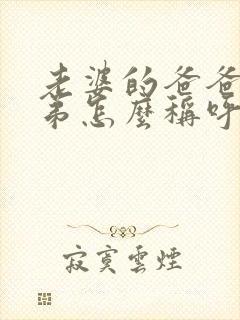 老婆的爸爸
弟怎麼稱呼
寂寞雲煙